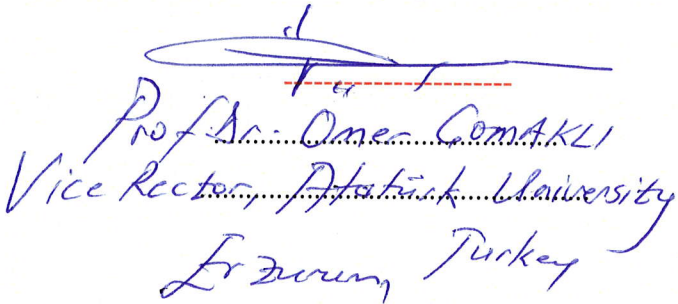 Prof. Dr. Ömer ÇomAKLI
Vice Rector, Atatürk University
Erzurum, Turkey